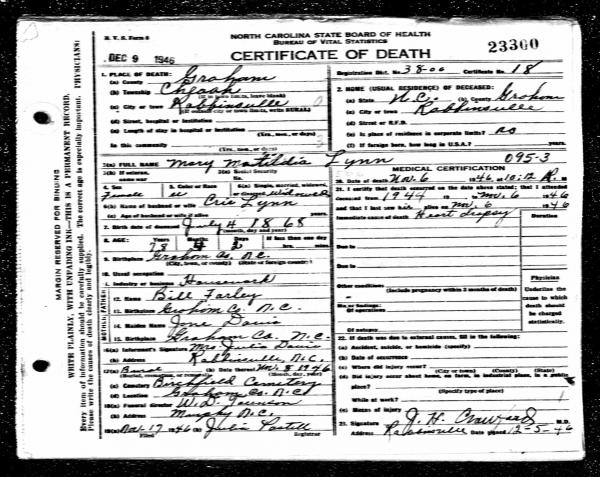 N. C. V. S. Form 8
NORTH CAROLINA STATE BOARD OF HEALTH
BUREAU OF VITAL STATISTICS
DEC 9 1946
CERTIFICATE OF DEATH
23300
Registration Dist. No. 38-00 Certificate No. 18
1. PLACE OF DEATH:
(a) County Graham
(b) Township Cheoah
(c) City or town Robbinsville
(If outside city or town limits, write RURAL)
(d) Street, hospital or institution
(e) Length of stay in hospital or institution
(Yrs., mos., or days)
2. HOME (USUAL RESIDENCE) OF DECEASED:
(a) State N.C. (b) County Graham
(c) City or town Robbinsville
(d) Street or R.F.D.
(e) Is place of residence in corporate limits? no
(f) If foreign born, how long in U.S.A.? years
3(a) FULL NAME Mary Matildia Lynn
095-3
3(b) If veteran, name war
3(c) Social Security No.
4. Sex Female
5. Color or Race W
6(a) Single, married, widowed, or divorced Widowed
6(b) Name of husband or wife Eric Lynn
6(c) Age of husband or wife if alive years
7. Birth date of deceased July 4 1868
(Month, day and year)
8. AGE: Years 78 Months 4 Days 2 If less than one day
9. Birthplace Graham Co. N.C.
(City, town, or county) (State or foreign country)
10. Usual occupation
11. Industry or business Housework
12. Name Bill Farley
13. Birthplace Graham Co. N.C.
14. Maiden Name Jone Davis
15. Birthplace Graham Co. N.C.
16(a) Informant's Signature Mrs Julia Davis
(b) Address Robbinsville N.C.
17(a) Burial (b) Date thereof Nov. 8 1946
(c) Cemetery Birchfield Cemetery
(d) Location Graham Co. N.C.
18(a) Funeral Director W. D. Townson
(b) Address Murphy N.C.
19(a) Nov-17 1946 Julia Postell
Filed Registrar
MEDICAL CERTIFICATION
20. Date of Death Nov. 6 1946 at 10:12 P.M.
21. I certify that death occurred on the date above stated; that I attended
deceased from 1944 to Nov. 6 1946
and that I last saw her alive on Nov. 6 1946
Immediate cause of death Heart dropsy
Duration
Due to
Due to
Other conditions
(Include pregnancy within 3 months of death)
Major findings:
Of operations
Of autopsy
Physician
Underline the cause to which death should be charged statistically.
22. If death was due to external causes, fill in the following:
(a) Accident, suicide, or homicide (specify)
(b) Date of occurrence
(c) Where did injury occur?
(City or town) (County) (State)
(d) Did injury occur about home, on farm, in industrial place, in a public place?
(Specify type of place)
While at work?
(e) Means of injury
23. Signature J. H. Crawford M.D.
Address Robbinsville Date signed 12-5-46
MARGIN RESERVED FOR BINDING
WRITE PLAINLY, WITH UNFADING INK—THIS IS A PERMANENT RECORD.
Every item of information should be carefully supplied. The correct age is especially important. PHYSICIANS:
Please write the causes of death clearly and legibly.